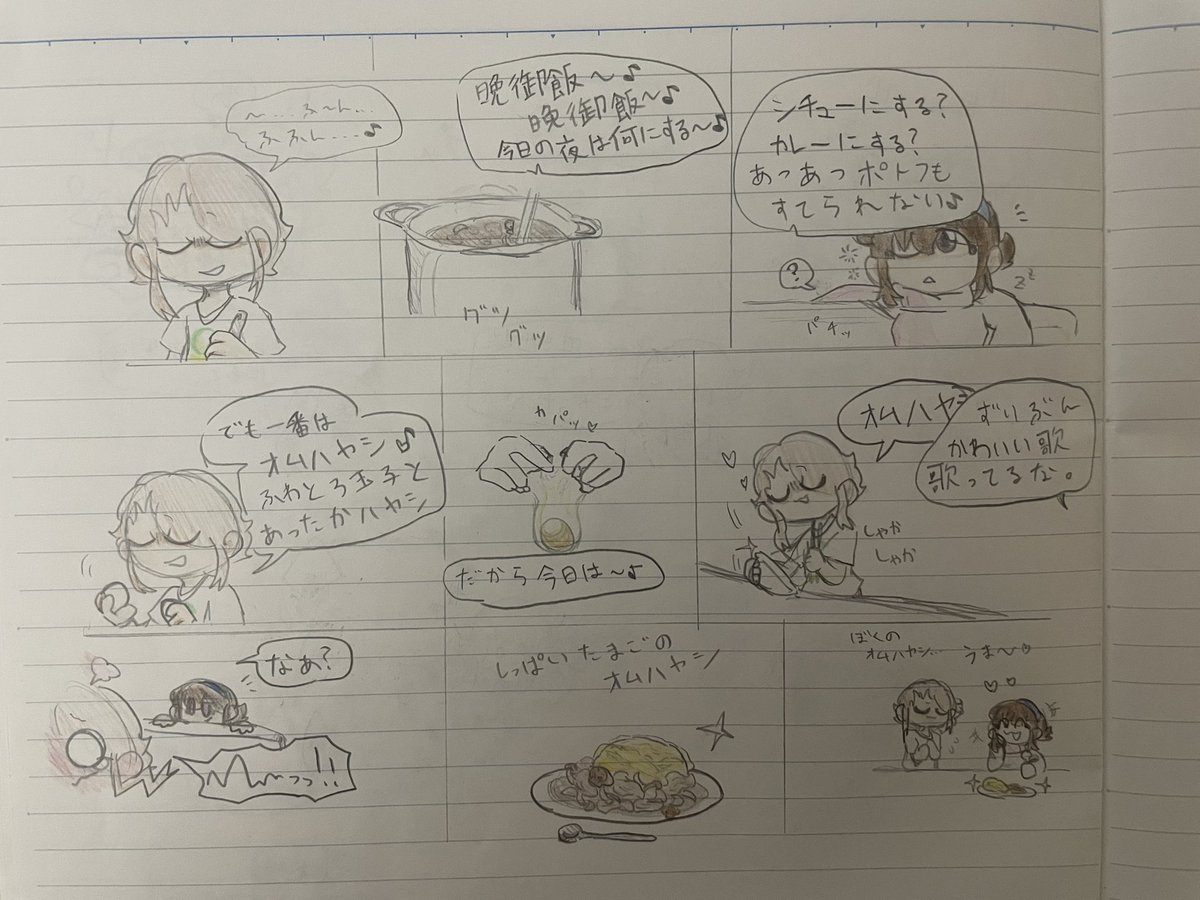 〜……ふ〜ん…
ふふん……♪
晩御飯〜♪
晩御飯〜♪
今日の夜は何にする〜♪
シチューにする?
カレーにする?
あつあつポトフも
すてられない♪
?
zz
グツ
グツ
パチッ
でも一番は
オムハヤシ♪
ふわとろ玉子と
あったかハヤシ
カパッ♡
だから今日は〜♪
オムハヤシ
ずいぶん
かわいい歌
歌ってるな。
しゃか
しゃか
なぁ?
っっ!!
しっぱいたまごの
オムハヤシ
ぼくの
オムハヤシ…
うま〜♡